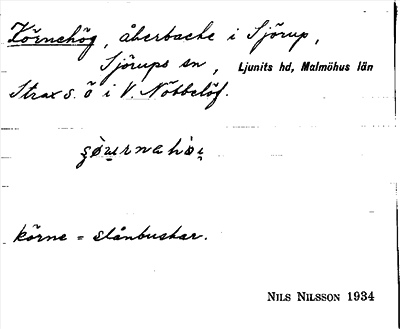 Körnehög, åkerbacke i Sjörup,
Sjörups sn, Ljunits hd, Malmöhus län
Strax s. ö i V. Nöbbelöf.
körne = slånbuskar.
NILS NILSSON 1934